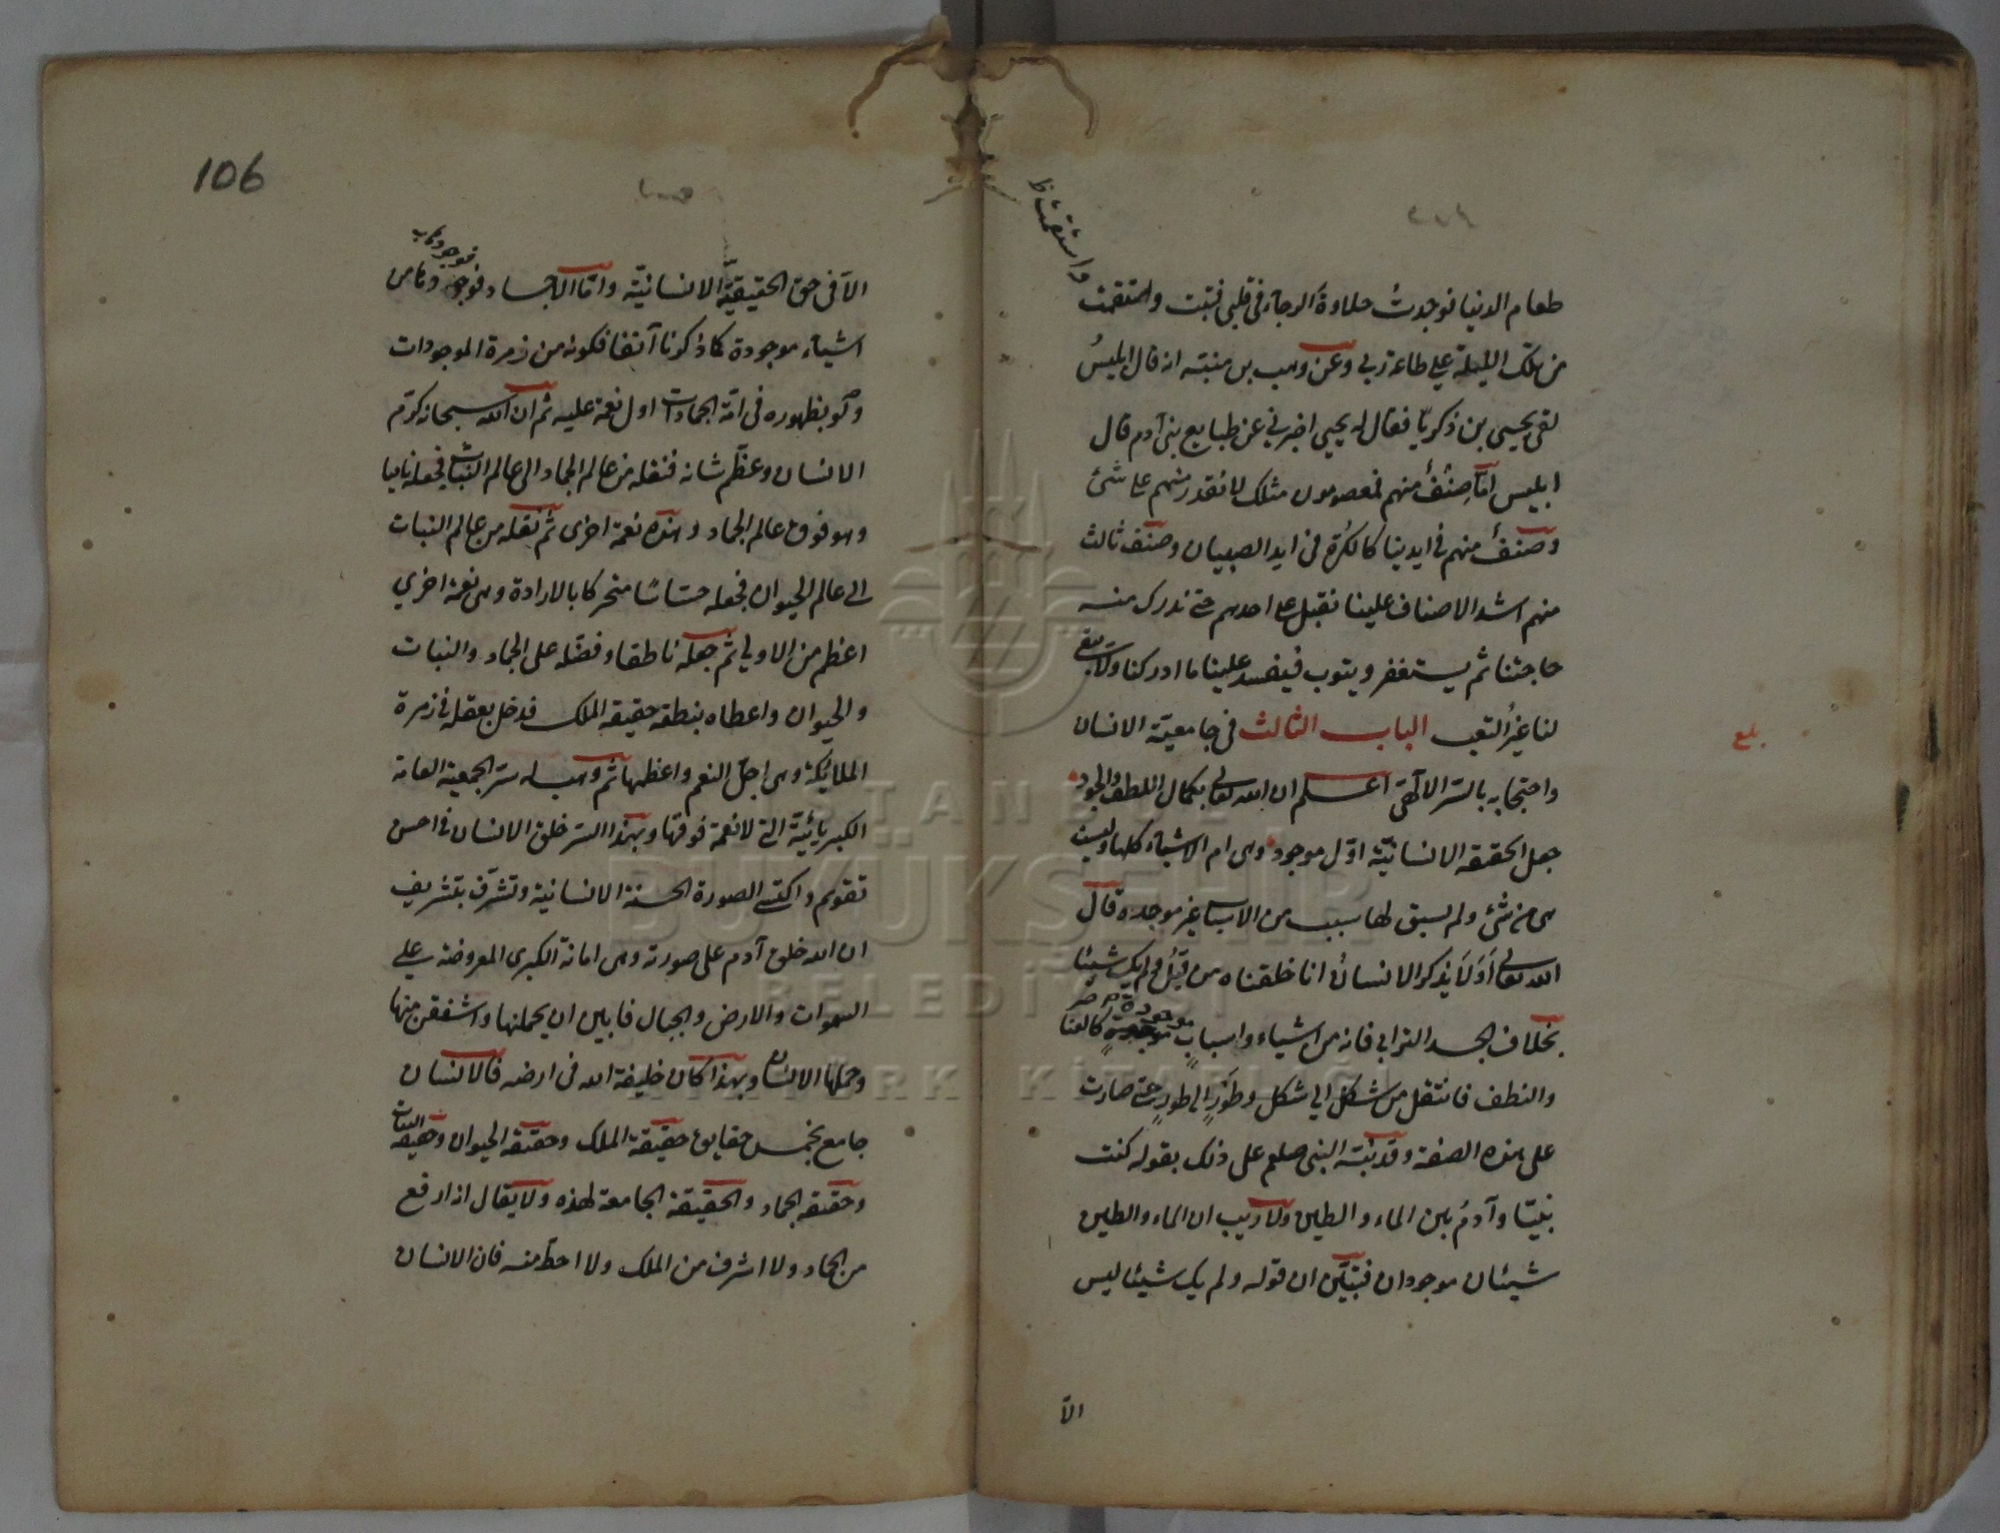 طعام الدنيا فوجدت حلاوة الرجاء فى قلبى فتبت واستقمت
واستقمت ظ
من تلك الليلة على طاعة ربى وعن وهب بن منبه انه قال ابليس
لقى يحيى بن زكريا فقال له يحيى اخبرنى عن طبايع بنى آدم قال
ابليس اما صنف منهم فمعصومون مثلك لا نقدر منهم على شئ
وصنف منهم فى ايدينا كالكرة فى ايد الصبيان وصنف ثالث
منهم اشد الاصناف علينا نقبل على احدهم حتى ندرك منه
حاجتنا ثم يستغفر ويتوب فيفسد علينا ما ادركنا ولا يبقى
لنا غير التعب الباب الثالث فى جامعية الانسان
بلغ
واحتجابه بالستر الالهى اعلم ان الله تعالى بكمال اللطف والجود
جعل الحقيقة الانسانية اول موجود وهى ام الاشياء كلها وليست
هى من شئ ولم يسبق لها سبب من الاسباب غير موجده قال
الله تعالى اولا يذكر الانسان انا خلقناه من قبل ولم يك شيئا
بخلاف الجسد الترابى فانه من اشياء واسباب موجودة كالعناصر
والنطف فانتقل من شكل الى شكل وطور الى طور حتى صارت
على هذه الصفة وقد نبه النبى صلعم على ذلك بقوله كنت
نبيا وآدم بين الماء والطين ولا ريب ان الماء والطين
شيئان موجودان فتبين ان قوله ولم يك شيئا ليس
الا
106
الا فى حق الحقيقة الانسانية واما الاجساد فوجودها من
فوجودها
اشياء موجودة كما ذكرنا آنفا فكونه من زمرة الموجودات
ولو بظهوره فى امة الجمادات اول نعمة عليه ثم ان الله سبحانه كرم
الانسان وعظم شانه فنقله من عالم الجماد الى عالم النبات فجعله ناميا
وهو فوق عالم الجماد وهذه نعمة اخرى ثم نقله من عالم النبات
الى عالم الحيوان فجعله حساسا متحركا بالارادة وهى نعمة اخرى
اعظم من الاولى ثم جعله ناطقا وفضله على الجماد والنبات
والحيوان واعطاه بنطقه حقيقة الملك فدخل بعقله فى زمرة
الملائكة وهى اجل النعم واعظمها ثم وهب له ستر الجمعية العامة
الكبريائية التى لا نعمة فوقها وبهذا الستر خلق الانسان فى احسن
تقويم واكتسى الصورة الحسنة الانسانية وتشرف بتشريف
ان الله خلق آدم على صورته وهى امانة الكبرى المعروضة على
السموات والارض والجبال فابين ان يحملنها واشفقن منها
وحملها الانسان وبهذا كان خليفة الله فى ارضه فالانسان
جامع بخمس حقايق حقيقة الملك وحقيقة الحيوان وحقيقة النبات
وحقيقة الجماد والحقيقة الجامعة لهذه ولا يقال انه ارفع
من الجماد ولا اشرف من الملك ولا احط منه فان الانسان
ISTANBUL
BÜYÜKŞEHİR
BELEDİYESİ
ATATÜRK KİTAPLIĞI